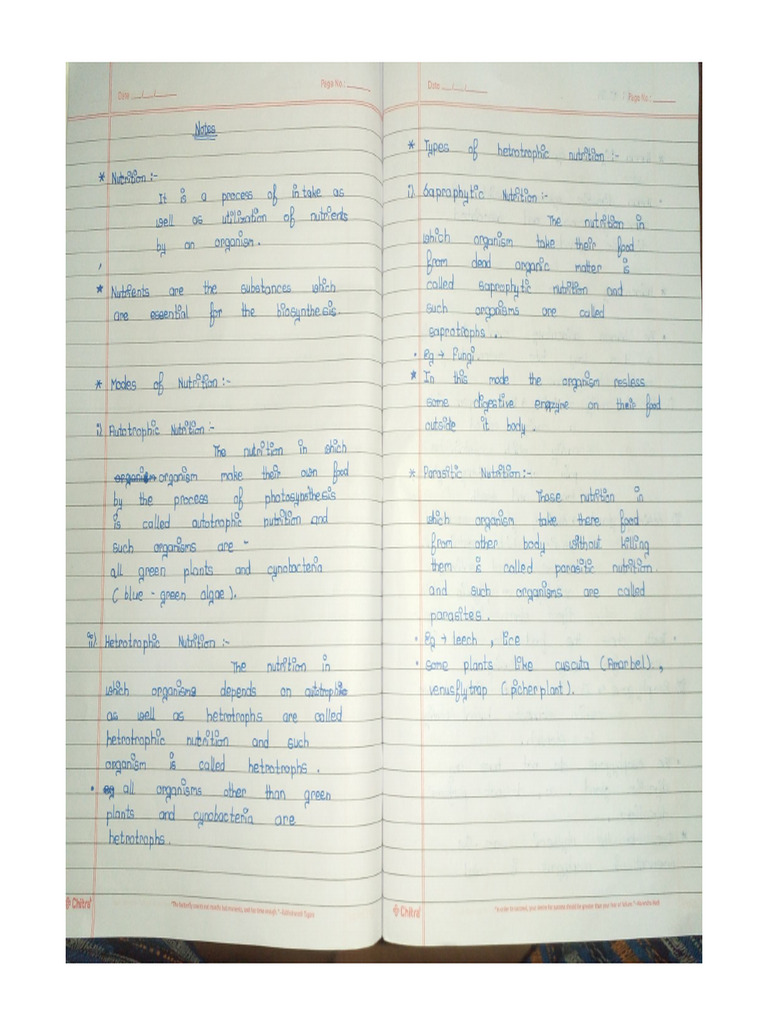 Date ___/___/___
Page No.: ______
Notes
* Nutrition :-
It is a process of intake as
well as utilization of nutrients
by an organism.
* Nutrients are the substances which
are essential for the biosynthesis.
* Modes of Nutrition :-
i) Autotrophic Nutrition :-
The nutrition in which
organism make their own food
by the process of photosynthesis
is called autotrophic nutrition and
such organisms are -
all green plants and cynobacteria
(blue - green algae).
ii) Hetrotrophic Nutrition :-
The nutrition in
which organisms depends on autotrophs
as well as hetrotrophs are called
hetrotrophic nutrition and such
organism is called hetrotrophs.
• all organisms other than green
plants and cynobacteria are
hetrotrophs.
Chitra
Date ___/___/___
Page No.: ______
* Types of hetrotrophic nutrition :-
i) Saprophytic Nutrition :-
The nutrition in
which organism take their food
from dead organic matter is
called saprophytic nutrition and
such organisms are called
saprotrophs..
• eg → Fungi.
* In this mode the organism resless
some digestive enzyme on their food
outside it body.
* Parasitic Nutrition :-
Those nutrition in
which organism take there food
from other body without killing
them is called parasitic nutrition.
and such organisms are called
parasites.
• eg → leech , lice
• some plants like cuscuta (Amarbel) ,
venusflytrap (picherplant).
Chitra